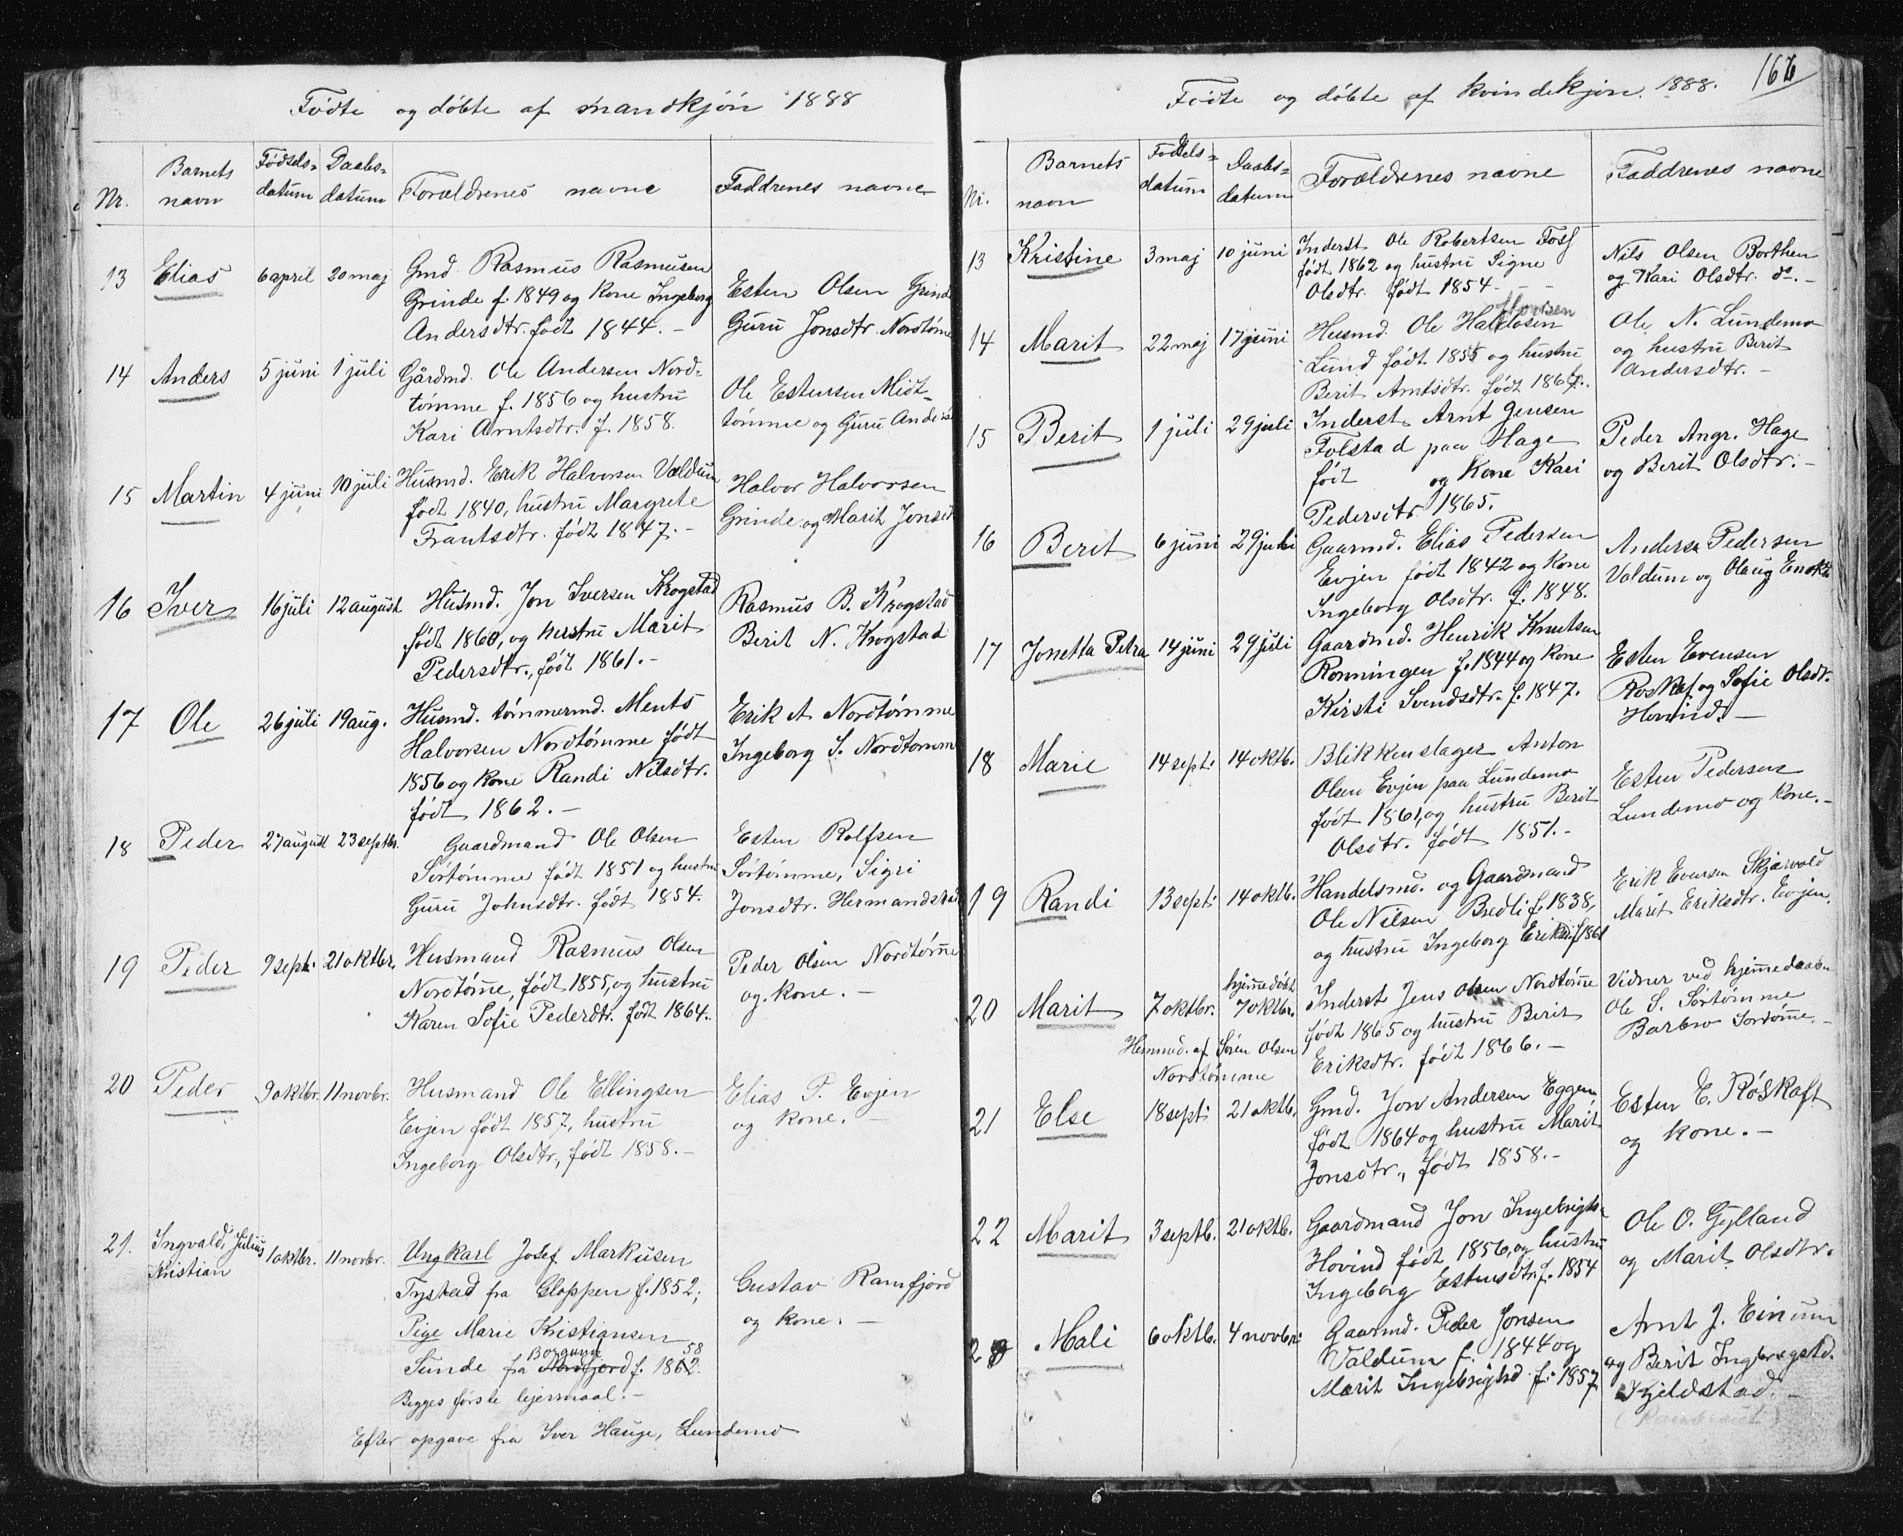 Fødte og døbte af mandkjøn 1888
Nr.
Barnets navn
Fødsels-datum
Daabs-datum
Forældrenes navne
Faddrenes navne
13 Elias 6 april 20 maj
Gmd. Rasmus Rasmusen
Grinde f. 1849 og kone Ingeborg
Andersdtr. født 1844. -
Esten Olsen Grinde
Guru Jonsdtr. Nordtømme
14 Anders 5 juni 1 juli
Gårdmd. Ole Andersen Nord-
tømme f. 1856 og hustru
Kari Arntsdtr. f. 1858.
Ole Estensen Midt-
tømme og Guru Andersd
15 Martin 4 juni 10 juli
Husmd. Erik Halvorsen Valdum
født 1840, hustru Margrete
Frantsdtr. født 1847. -
Halvor Halvorsen
Grinde og Marit Jonsdt
16 Iver 16 juli 12 august
Husmd. Jon Iversen Krogstad
født 1860, og hustru Marit
Pedersdtr., født 1861. -
Rasmus B. Krogstad
Berit N. Krogstad
17 Ole 26 juli 19 aug.
Husmd. tømmermd. Ments
Halvorsen Nordtømme født
1856 og kone Randi Nilsdtr.
født 1862. -
Erik A Nordtømme
Ingeborg S. Nordtømm
18 Peder 27 august 23 septbr.
Gaardmand Ole Olsen
Sørtømme født 1851 og hustru
Guru Johnsdtr. født 1854.
Esten Rolfsen
Sørtømme, Sigri
Jonsdtr. Hermandstad
19 Peder 9 sept. 21 oktbr.
Husmand Rasmus Olsen
Nordtømme, født 1855, og hustru
Karen Sofie Pedersdtr. født 1864.
Peder Olsen Nordtømme
og kone. -
20 Peder 9 oktbr. 11 novbr.
Husmand Ole Ellingsen
Evjen født 1857, hustru
Ingeborg Olsdtr., født 1858. -
Elias P. Evjen
og kone. -
21. Ingvald Julius
Kristian
1 oktbr. 11 novbr.
Ungkarl Josef Markusen
Tystad fra Gloppen f. 1852;
Pige Marie Kristiansen
Borgund 58
Sunde fra f. 1862.
Begges første lejermaal. -
Efter opgave fra Iver Hauge, Lundemo
Gustav Ramfjord
og kone. -
166
Fødte og døbte af kvindekjøn. 1888.
Nr.
Barnets navn
Fødsels-datum
Daabs-datum
Forældrenes navne
Faddrenes navne
13 Kristine 3 maj 10 juni
Inderst Ole Robertsen Foss
født 1862 og hustru Signe
Olsdtr. født 1854 -
Nils Olsen Borthen
og Kari Olsdtr. do. -
14 Marit 22 maj 17 juni
Husmd. Ole
Lund født 1855 og hustru
Berit Arntsdtr. født
Ole N. Lundemo
og hustru Berit
Andersdtr. -
15 Berit 1 juli 29 juli
Inderst Arnt Jensen
Folstad paa Hage
født og kone Kari
Pedersdtr 1865.
Peder Angr. Hage
og Berit Olsdtr. -
16 Berit 6 juni 29 juli
Gaarmd. Elias Pedersen
Evjen født 1842 og kone
Ingeborg Olsdtr. f. 1848.
Anders Pedersen
Valdum og Olaug Enokd
17 Jonetta Petra 14 juni 29 juli
Gaardmd. Henrik Knutsen
Ronningen f. 1844 og kone
Kirsti Svendsdtr. f. 1847.
Esten Evensen
Røskaf. og Sofie Olsdtr.
Hovind. -
18 Marie 14 sept. 14 oktb.
Blikkenslager Anton
Olsen Evjen paa Lundemo
født 1861, og hustru Berit
Olsdtr. født 1851. -
Esten Pedersen
Lundemo og kone. -
19 Randi 13 sept. 14 oktb.
Handelsmd. og Gaardmand
Ole Nilsen Bredli f. 1838,
og hustru Ingeborg Eriksd f. 1861
Erik Evensen Skjærvold
Marit Eriksdtr. Evjen.
20 Marit 7 oktbr. hjemmedøbt
7 oktbr.
Hjemmd. af Søren Olsen
Nordtømme
Inderst Jens Olsen Nordtømme
født 1865 og hustru Berit
Eriksdtr. født 1866. -
Vidner ved hjemmedaaben
Ole S. Sørtømme
Barbro Sørtømme. -
21 Else 18 sept. 21 oktb.
Gmd. Jon Andersen Eggen,
født 1864 og hustru Marit
Jonsdtr., født 1858. -
Esten E. Røskaft
og kone. -
22 Marit 3 septb. 21 oktb.
Gaardmand Jon Ingebrigts-
Hovind født 1856, og hustru
Ingeborg Estensdtr. f. 1854
Ole O. Gylland
og Marit Olsdtr.
23 Mali 6 oktb. 4 novbr.
Gaarmd. Peder Jonsen
Valdum f. 1844 og
Marit Ingebrigtsd. f. 1857
Arnt J. Einum
og Berit Ingebrigtsd.
Kjeldstad. -